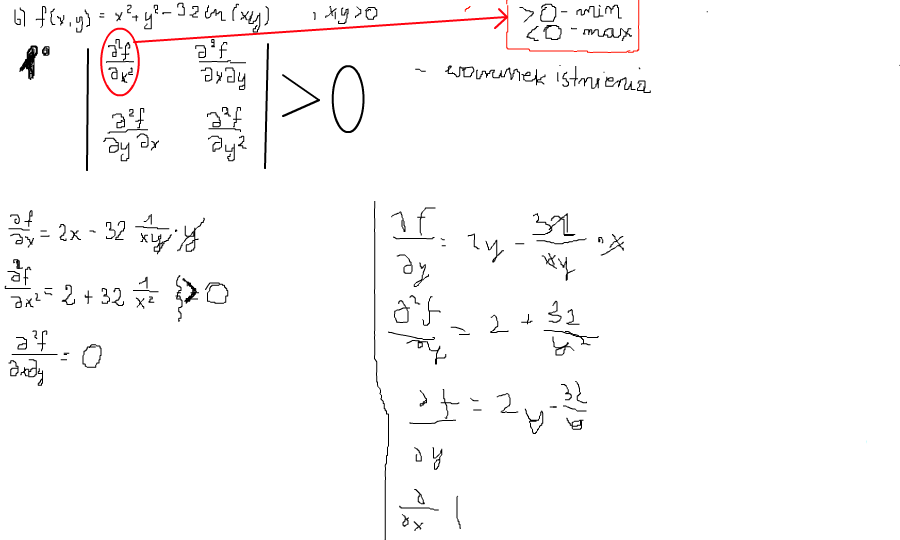 b) f(x,y) = x² + y² - 32 ln(xy) , xy > 0
> 0 - min
< 0 - max
1°
| ∂²f/∂x² ∂²f/∂x∂y |
| ∂²f/∂y∂x ∂²f/∂y² | > 0
- warunek istnienia
∂f/∂x = 2x - 32 1/xy · y
∂²f/∂x² = 2 + 32 1/x² } > 0
∂²f/∂x∂y = 0
∂f/∂y = 2y - 32/xy · x
∂²f/∂y = 2 + 32/y²
∂f/∂y = 2y - 32/y
∂/∂x |